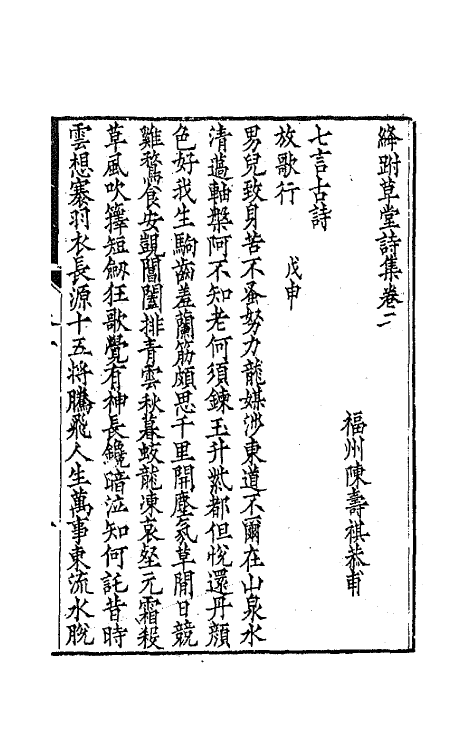 絳跗草堂詩集卷二
福州陳壽祺恭甫
七言古詩
放歌行 戊申
男兒致身苦不蚤努力龍媒涉東道不爾在山泉水
清薖軸槃阿不知老何須鍊玉升紫都但悅還丹顏
色好我生駒齒羞蘭筋頗思千里開塵氛草間日競
雞鶩食安覩閶闔排青雲秋暮蛟龍凍哀壑元霜殺
草風吹籜短劒狂歌覺有神長鑱暗泣知何託昔時
雲想褰羽衣長源十五將騰飛人生萬事東流水脫